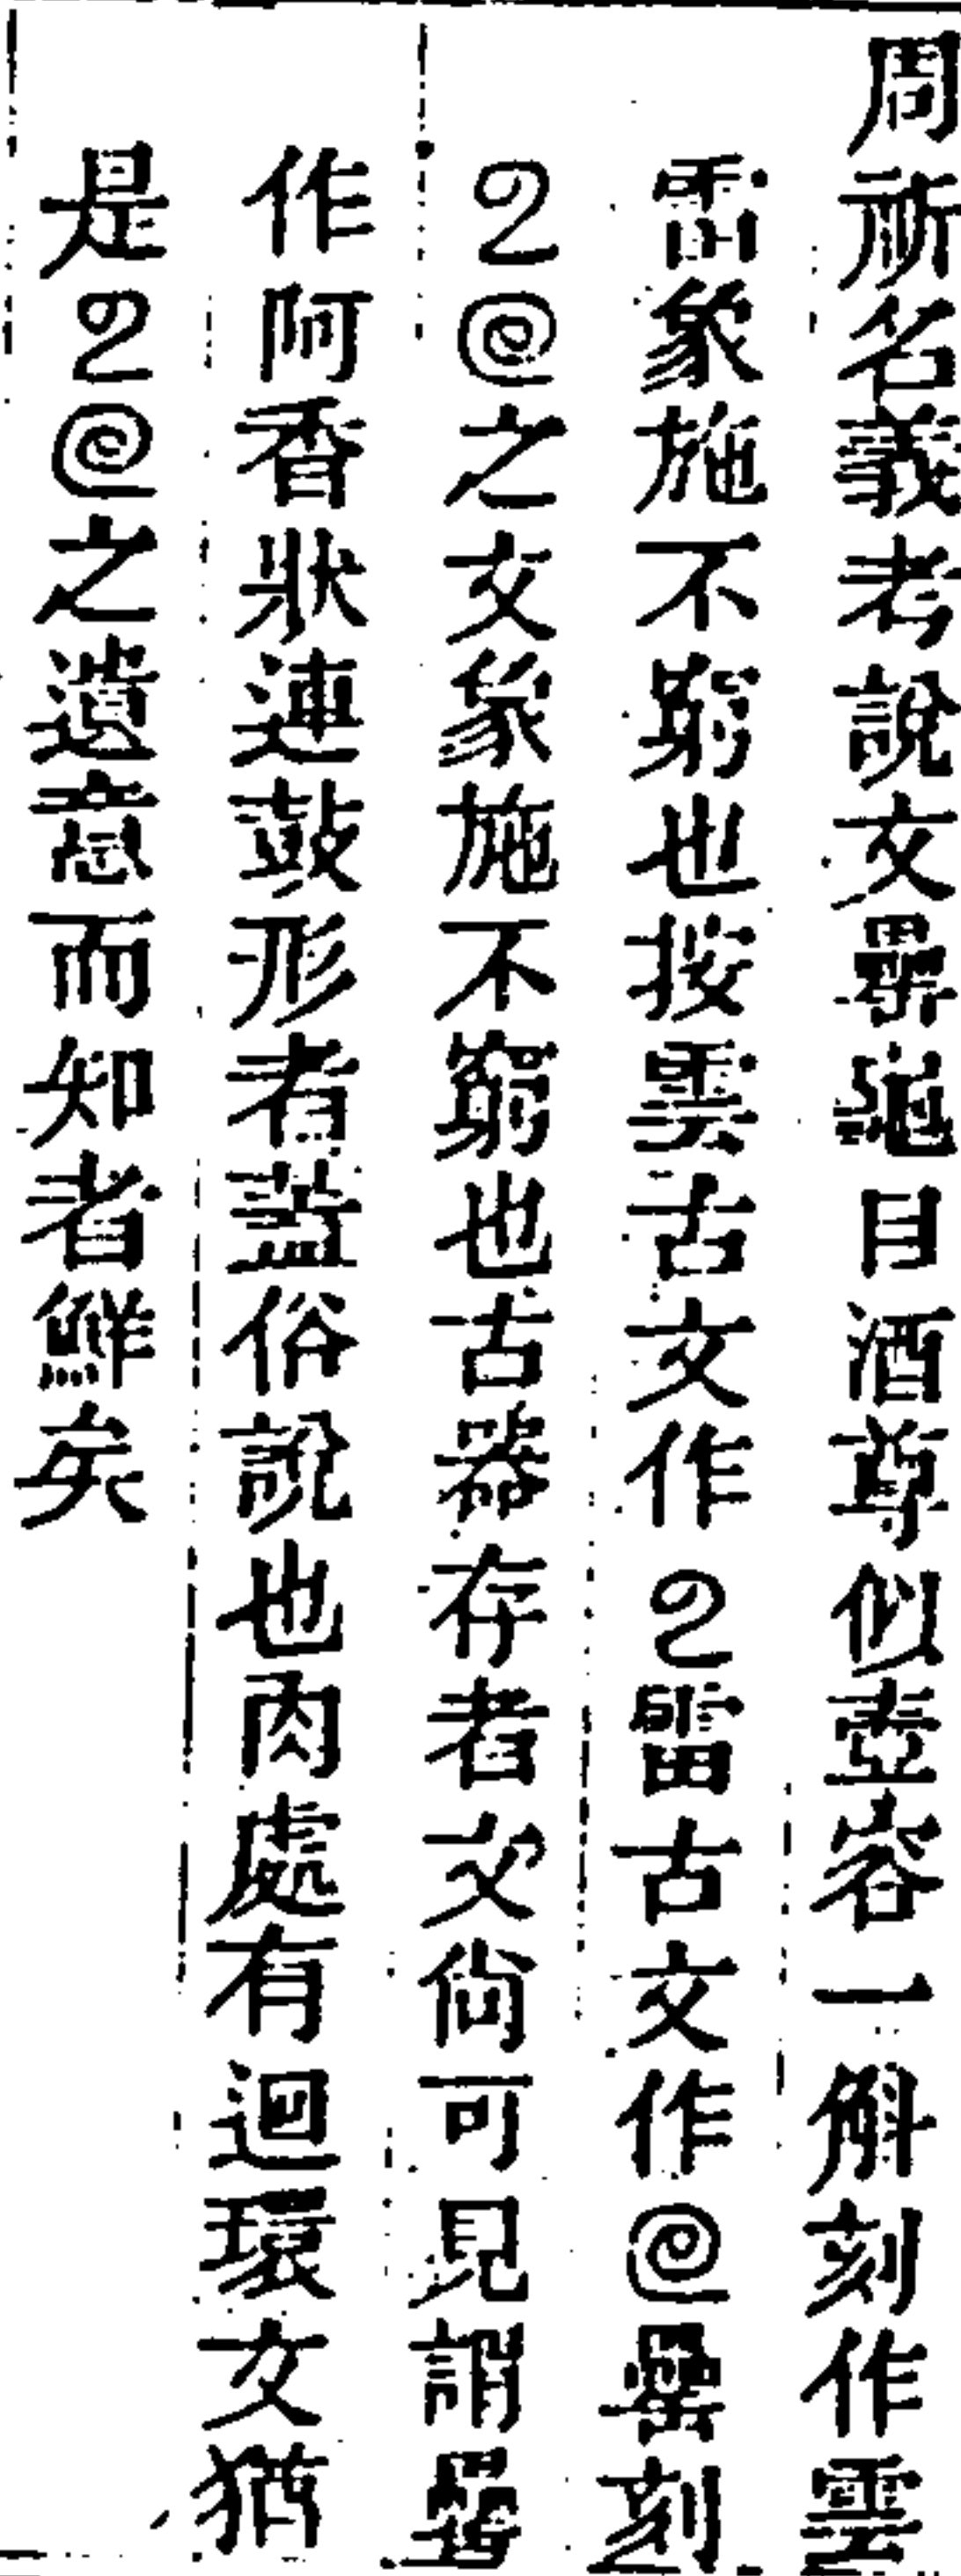 周祈名義考說文櫐龜目酒尊似壺容一斛刻作雲
雷象施不窮也按雲古文作雷古文作罍刻
之文象施不窮也古器存者文尚可見謂罍
作阿香狀連鼓形者蓋俗說也肉處有迴環文猶
是之遺意而知者鮮矣